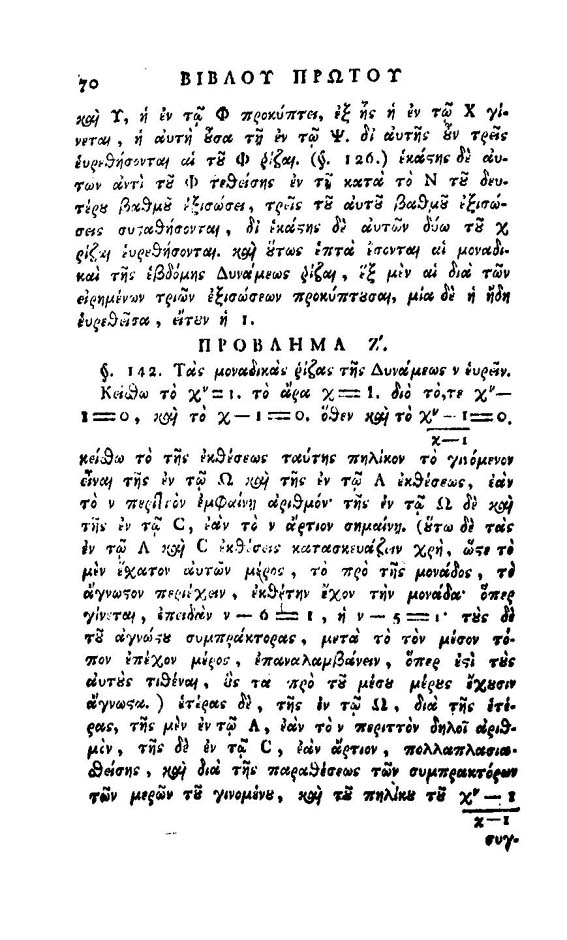 70 ΒΙΒΛΟΥ ΠΡΩΤΟΥ
καὶ Υ, ἡ ἐν τῷ Φ προκύπτει, ἐξ ἧς ἡ ἐν τῷ Χ γί-
νεται, ἡ αὐτὴ ȣ̓͂σα τῇ ἐν τῷ Ψ. δι' αὐτῆς ȣ̓͂ν τρεῖς
ἑυρεθήσονται αἱ τȣ͂ Φ ῥίζαι. (§. 126.) ἑκάϛης δὲ αὐ-
των ἀντὶ τȣ͂ Φ τεθείσης ἐν τῇ κατὰ τὸ Ν τȣ͂ δευ-
τέρȣ βαθμȣ͂ ἐξισώσει, τρεῖς τȣ͂ αὐτȣ͂ βαθμȣ͂ ἐξισώ-
σεις συϛαθήσονται, δι' ἑκάϛης δὲ αὐτῶν δύω τȣ͂ χ
ῥίζαι ἑυρεθήσονται. καὶ ȣ̔́τως ἑπτὰ ἔσονται αἱ μοναδι-
καὶ τῆς ἑβδόμης Δυνάμεως ῥίζαι, ἓξ μὲν αἱ διὰ τῶν
εἰρημένων τριῶν ἐξισώσεων προκύπτȣσαι, μία δὲ ἡ ἤδη
ἑυρεθεῖσα, εἴτȣν ἡ 1.
ΠΡΟΒΛΗΜΑ Ζ'.
§. 142. Τὰς μοναδικὰς ῥίζας τῆς Δυνάμεως ν ἑυρεῖν.
Κείσθω τὸ χ^ν = 1. τὸ ἄρα χ = 1. διὸ τό,τε χ^ν —
1 = 0, καὶ τὸ χ — 1 = 0. ὅθεν καὶ τὸ χ^ν — 1 = 0.
χ—1
κείσθω τὸ τῆς ἐκθέσεως ταύτης πηλίκον τὸ γινόμενον
εἶναι τῆς ἐν τῷ Ω καὶ τῆς ἐν τῷ Λ ἐκθέσεως, ἐὰν
τὸ ν περιττὸν ἐμφαίνη ἀριθμόν· τῆς ἐν τῷ Ω δὲ καὶ
τῆς ἐν τῷ C, ἐὰν τὸ ν ἄρτιον σημαίνη. (ȣ̔́τω δὲ τὰς
ἐν τῷ Λ καὶ C ἐκθέσεις κατασκευάζειν χρὴ, ὥϛε τὸ
μὲν ἔχατον αὐτῶν μέρος, τὸ πρὸ τῆς μονάδος, τὸ
ἄγνωϛον περιέχειν, ἐκθέτην ἔχον τὴν μονάδα· ὅπερ
γίνεται, ἐπειδὰν ν — 6 = 1, ἢ ν — 5 = 1· τȣ̀ς δὲ
τȣ͂ ἀγνώϛȣ συμπράκτορας, μετὰ τὸ τὸν μέσον τό-
πον ἐπέχον μέρος, ἐπαναλαμβάνειν, ὅπερ ἐϛὶ τȣ̀ς
αὐτȣ̀ς τιθέναι, ȣ̔̀ς τὰ πρὸ τȣ͂ μέσȣ μέρȣς ἔχȣσιν
ἄγνωϛα.) ἑτέρας δὲ, τῆς ἐν τῷ Ω, διὰ τῆς ἑτέ-
ρας, τῆς μὲν ἐν τῷ Λ, ἐὰν τὸ ν περιττὸν δηλοῖ ἀριθ-
μὸν, τῆς δὲ ἐν τῷ C, ἐὰν ἄρτιον, πολλαπλασια-
σθείσης, καὶ διὰ τῆς παραθέσεως τῶν συμπρακτόρων
τῶν μερῶν τȣ͂ γινομένȣ, καὶ τȣ͂ πηλίκȣ τȣ͂ χ^ν — 1
χ—1
συγ-